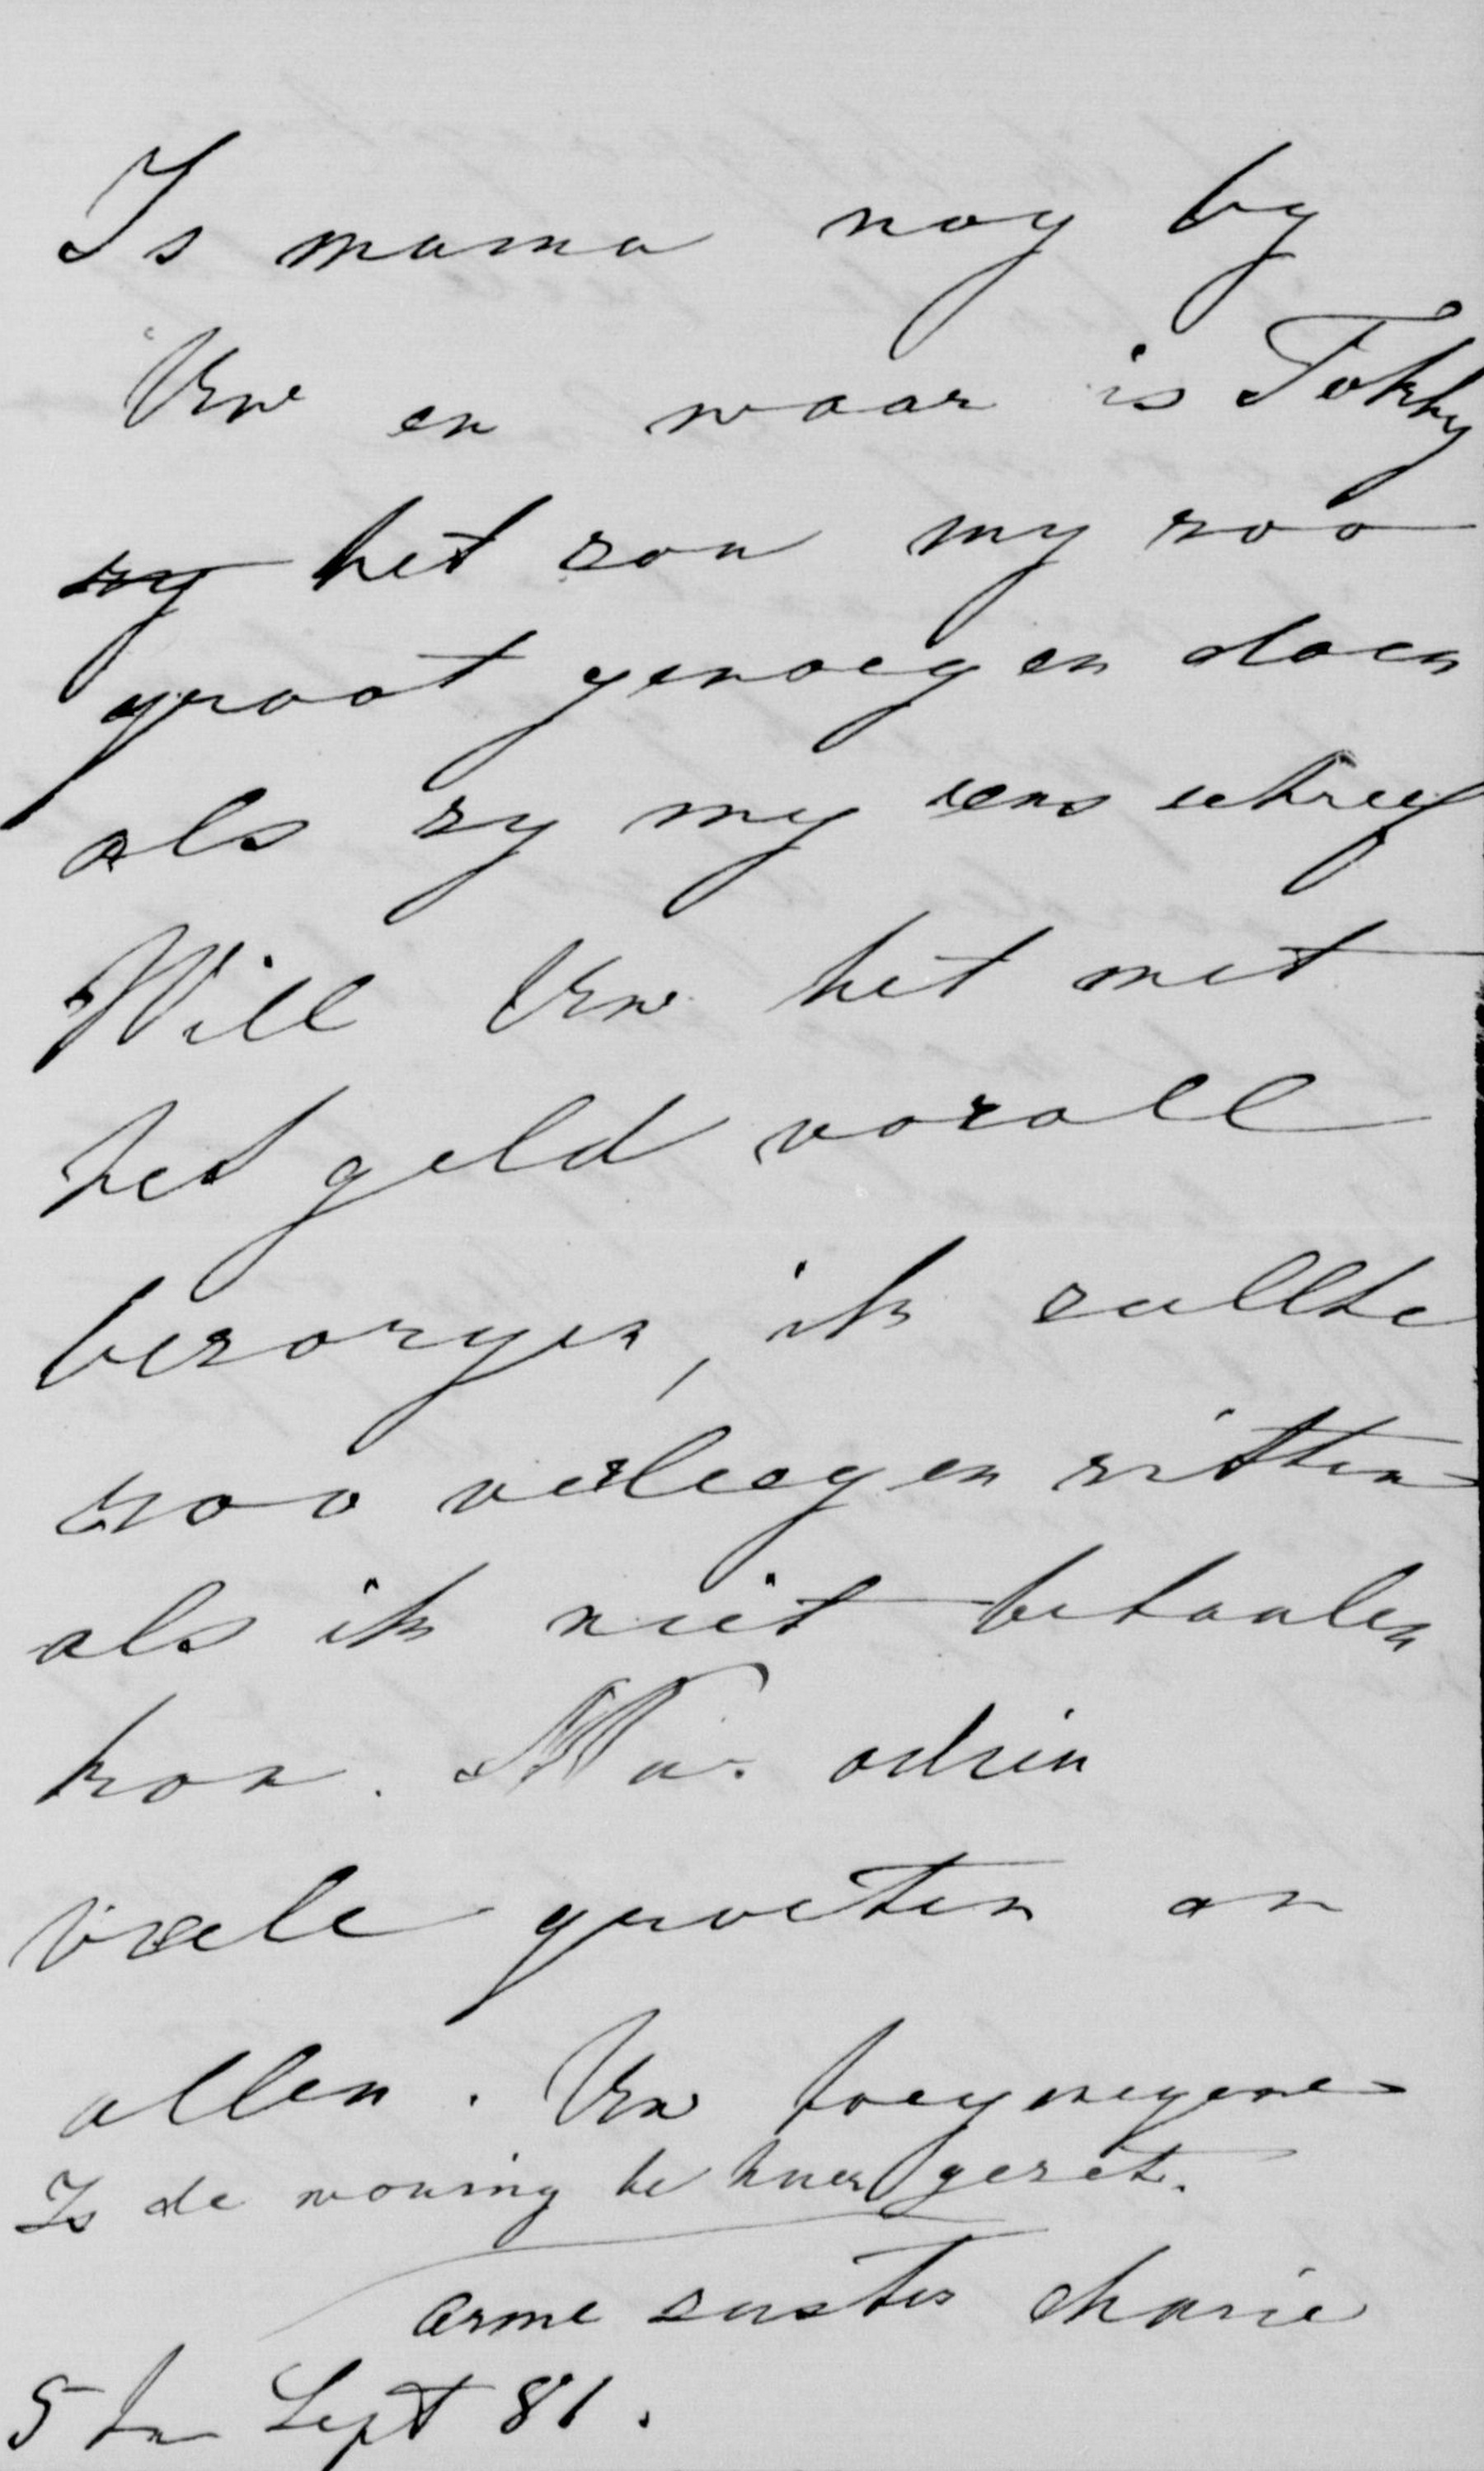 Is mama nog by
Uw en waar is Tokky
zy het zou my zoo
groot genoegen doen
als zy my eens schreef
Will Uw het met
het geld vorall
bezorgen, ik sullte
zoo verleegen zitten
als ik niet betaalen
kon. Nu. adieu
viele groeten an
allen. Uw toegenegene
Is de woning te huer gezet.
arme suster Marie
5ten Sept 81.